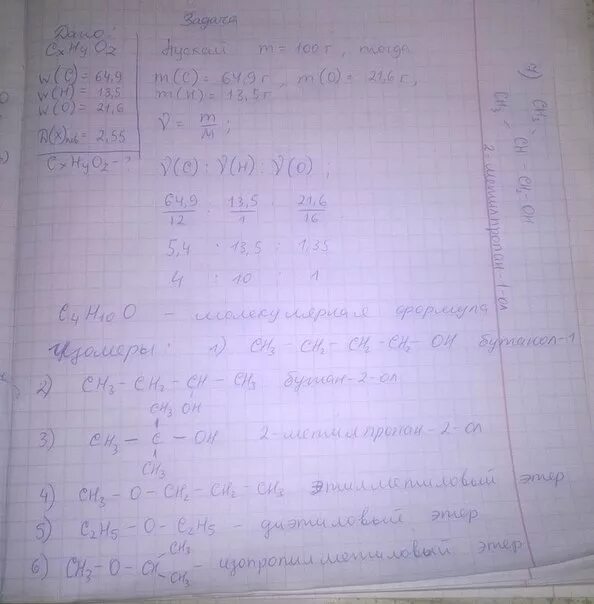 Задача
Дано:
CxHyOz
w(C) = 64,9
w(H) = 13,5
w(O) = 21,6
D(x)возд = 2,55
CxHyOz - ?
Пускай m = 100 г, тогда
m(C) = 64,9 г, m(O) = 21,6 г,
m(H) = 13,5 г
ν = m/M ;
ν(C) : ν(H) : ν(O) ;
64,9/12 : 13,5/1 : 21,6/16
5,4 : 13,5 : 1,35
4 : 10 : 1
C4H10O - молекулярная формула
Изомеры: 1) CH3 - CH2 - CH2 - CH2 - OH бутанол-1
2) CH3 - CH2 - CH - CH3 бутан-2-ол
CH3 OH
3) CH3 - C - OH 2-метилпропан-2-ол
CH3
4) CH3 - O - CH2 - CH2 - CH3 Этилметиловый этер
5) C2H5 - O - C2H5 - диэтиловый этер
6) CH3 - O - CH CH3 CH3 - изопропилметиловый этер
7) CH3
CH3 - CH - CH2 - OH
2-метилпропан-1-ол